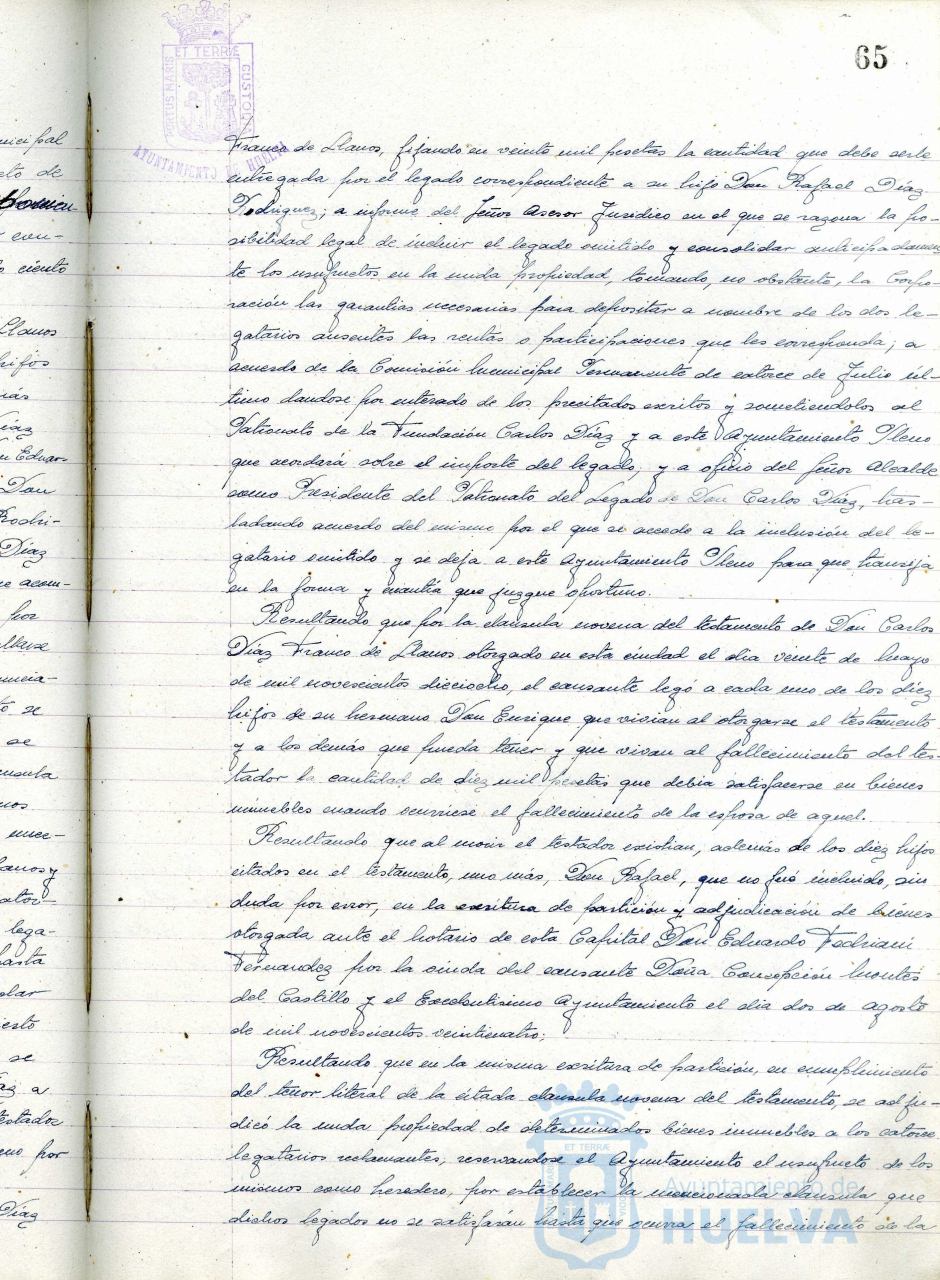 65
PORTUS MARIS ET TERRÆ CUSTODIA
AYUNTAMIENTO DE HUELVA
Franco de Llanos, fijando en veinte mil pesetas la cantidad que debe serle
entregada por el legado correspondiente a su hijo Don Rafael Díaz
Rodriguez; a informe del Señor Asesor Jurídico en el que se razona la po-
sibilidad legal de incluir el legado omitido y consolidar anticipadamen-
te los usufructos en la nuda propiedad, tomando, no obstante, la Corpo-
ración las garantias necesarias para depositar a nombre de los dos le-
gatarios ausentes las rentas o participaciones que les corresponda; a
acuerdo de la Comisión Municipal Permanente de catorce de Julio úl-
timo dandose por enterado de los precitados escritos y sometiendolos al
Patronato de la Fundación Carlos Díaz y a este Ayuntamiento Pleno
que acordará sobre el importe del legado; y a oficio del Señor Alcalde
como Presidente del Patronato del Legado de Don Carlos Díaz, tras-
ladando acuerdo del mismo por el que se accede a la inclusión del le-
gatario omitido y se deja a este Ayuntamiento Pleno para que transija
en la forma y cuantía que juzgue oportuno.
Resultando que por la clausula novena del testamento de Don Carlos
Díaz Franco de Llanos otorgado en esta ciudad el dia veinte de Mayo
de mil novescientos dieciocho, el causante legó a cada uno de los diez
hijos de su hermano Don Enrique que vivian al otorgarse el testamento
y a los demás que pueda tener y que vivan al fallecimiento del tes-
tador la cantidad de diez mil pesetas que debia satisfacerse en bienes
inmuebles cuando ocurriese el fallecimiento de la esposa de aquel.
Resultando que al morir el testador existian, además de los diez hijos
citados en el testamento, uno más, Don Rafael, que no fué incluido, sin
duda por error, en la escritura de partición y adjudicación de bienes
otorgada ante el Notario de esta Capital Don Eduardo Fedriani
Fernandez por la viuda del causante Doña Concepción Montes
del Castillo y el Excelentisimo Ayuntamiento el dia dos de agosto
de mil novescientos veinticuatro;
Resultando que en la misma escritura de partición, en cumplimiento
del tenor literal de la citada clausula novena del testamento, se adju-
dicó la nuda propiedad de determinados bienes inmuebles a los catorce
legatarios reclamantes, reservandose el Ayuntamiento el usufructo de los
mismos como heredero, por establecer la mencionada clausula que
dichos legados no se satisfarán hasta que ocurra el fallecimiento de la
Ayuntamiento de
HUELVA